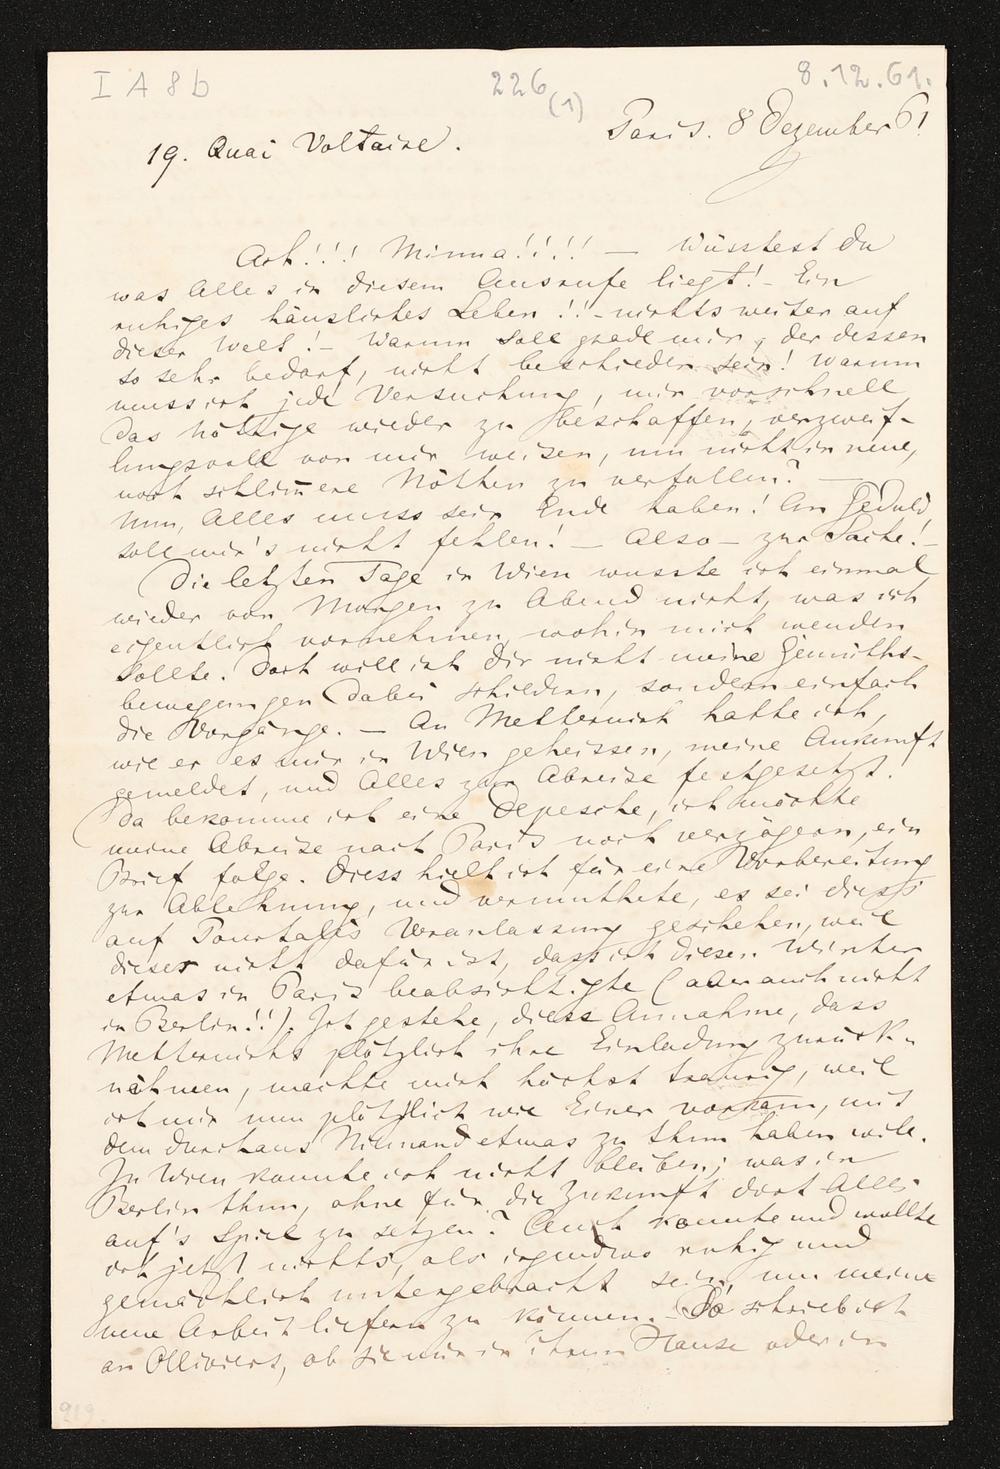 I A 8 b
226
(1)
8.12.61.
Paris. 8 Dezember 61
19. Quai Voltaire.
Ach!!! Minna!!!! — Wüsstest du
was Alles in diesem Ausrufe liegt! - Ein
ruhiges häusliches Leben!! - nichts weiter auf
dieser Welt! - Warum soll grade mir, der dessen
so sehr bedarf, nicht beschieden sein! Warum
muss ich jede Versuchung, mir vorschnell
das Nöthige wieder zu beschaffen, verzweif-
lungsvoll von mir weisen, um nicht in neue,
noch schlimere Nöthen zu verfallen? —
Nun, Alles muss sein Ende haben! An Geduld
soll mir's nicht fehlen! — Also — zur Sache! -
Die letzten Tage in Wien wusste ich einmal
wieder von Morgen zu Abend nicht, was ich
eigentlich vornehmen, wohin mich wenden
sollte. Doch will ich Dir nicht meine Gemüths-
bewegungen dabei schildern, sondern einfach
die Vorgänge. — An Metternich hatte ich,
wie er es mir in Wien geheissen, meine Ankunft
gemeldet, und Alles zur Abreise festgesetzt.
Da bekomme ich eine Depesche, ich möchte
meine Abreise nach Paris noch verzögern, ein
Brief folge. Diess hielt ich für eine Vorbereitung
zur Ablehnung, und vermuthete, es sei diess
auf Pourtalès Veranlassung geschehen, weil
dieser nicht dafür ist, dass ich diesen Winter
etwas in Paris beabsichtigte (aber auch nicht
in Berlin!!). Ich gestehe, diese Annahme, dass
Metternichs plötzlich ihre Einladung zurück-
nähmen, machte mich höchst traurig, weil
ich mir nun plötzlich wie Einer vorkam, mit
dem durchaus Niemand etwas zu thun haben will.
In Wien konnte ich nicht bleiben; was in
Berlin thun, ohne für die Zukunft dort Alles
auf's Spiel zu setzen? Auch konnte und wollte
ich jetzt nichts, als irgendwo ruhig und
gemächlich untergebracht sein, um meine
neue Arbeit liefern zu können. - Da schrieb ich
an Olliviers, ob sie mir in ihrem Hause oder in
219.